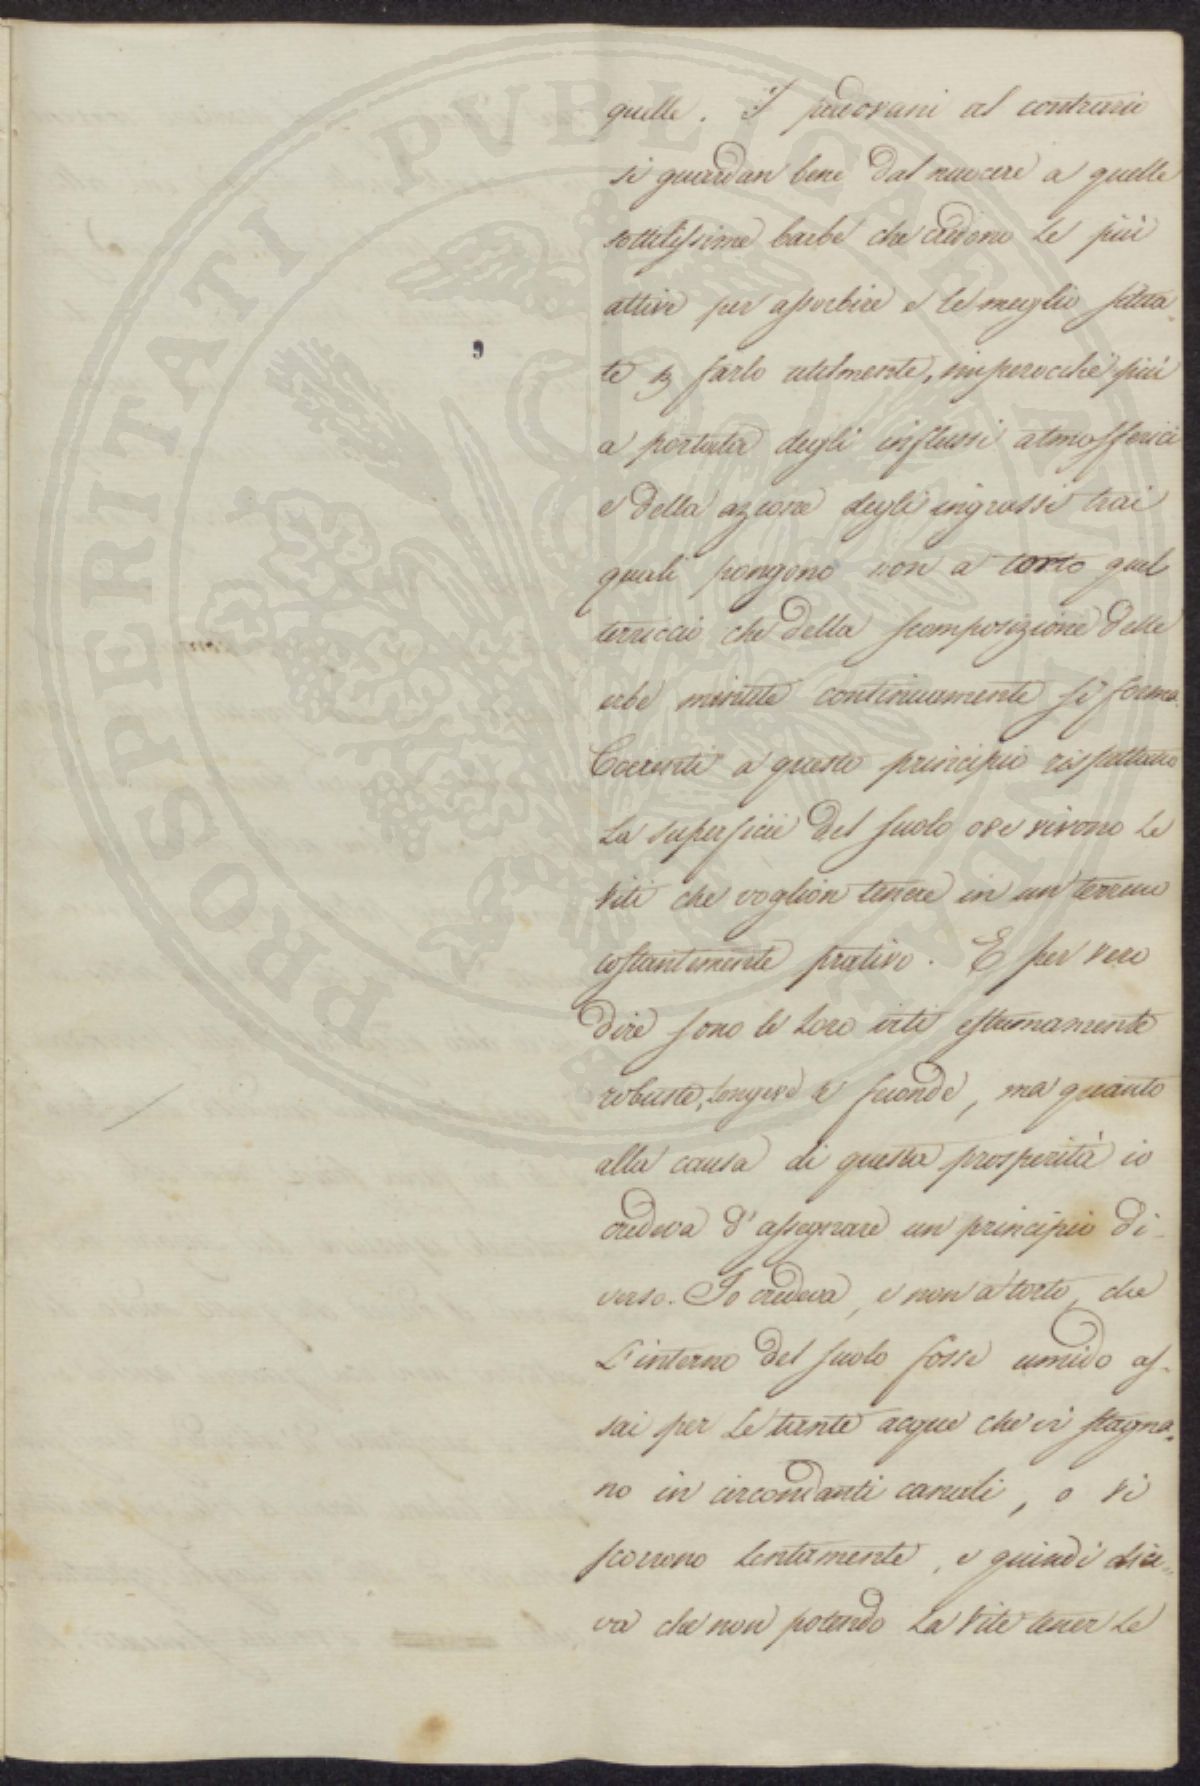 quelle. I padovani al contrario
si guardan bene dal nuocere a quelle
sottilissime barbe che credono le più
attive per assorbire e le meglio situa-
te farlo utilmente, imperocchè più
a portata degli influssi atmosferici
e della azione degli ingrassi trai
quali pongono non a torto quel
terriccio che della scomposizione delle
erbe minute continuamente si forma.
Coerenti a questo principio rispettano
la superficie del suolo ove vivono le
viti che voglion tenere in un terreno
costantemente prativo. E per vero
dire sono le loro viti estremamente
robuste, longeve e feconde, ma quanto
alla causa di questa prosperità io
credeva d'assegnare un principio di-
verso. Io credeva, e non a torto, che
l'interno del suolo fosse umido as-
sai per le tante acque che vi stagna-
no in circondanti canali, o vi
scorrono lentamente, e quindi dice-
va che non potendo la vite tener le
PROSPERITATI PVBLICAE